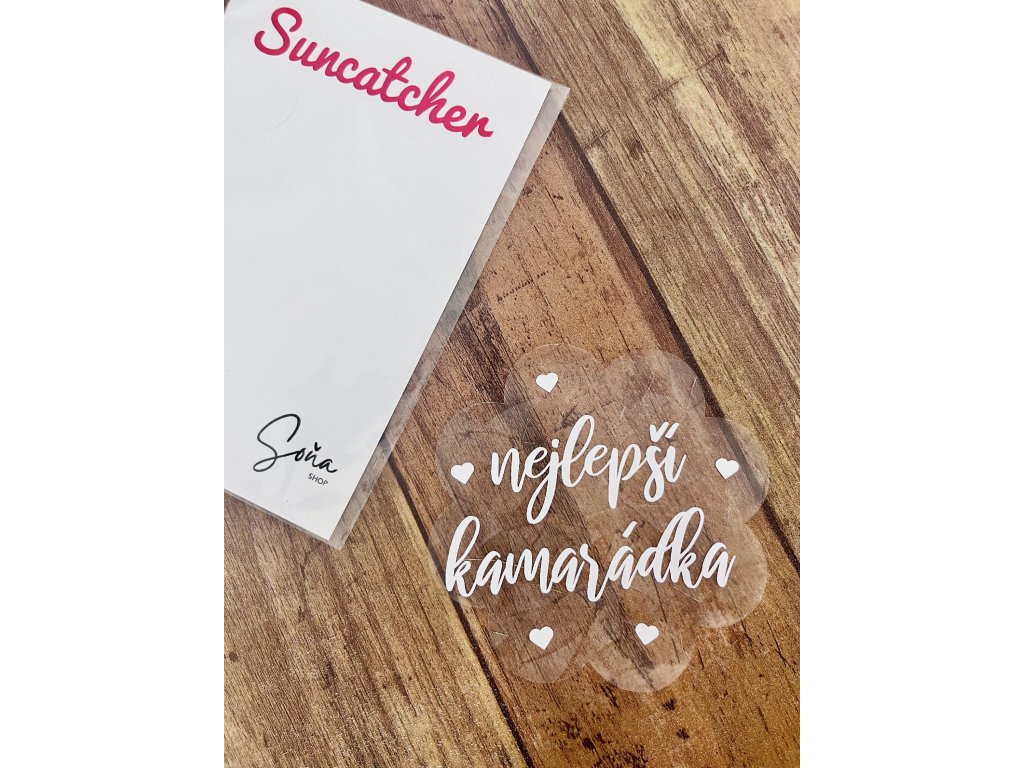 Suncatcher
Soňa
SHOP
nejlepší
kamarádka